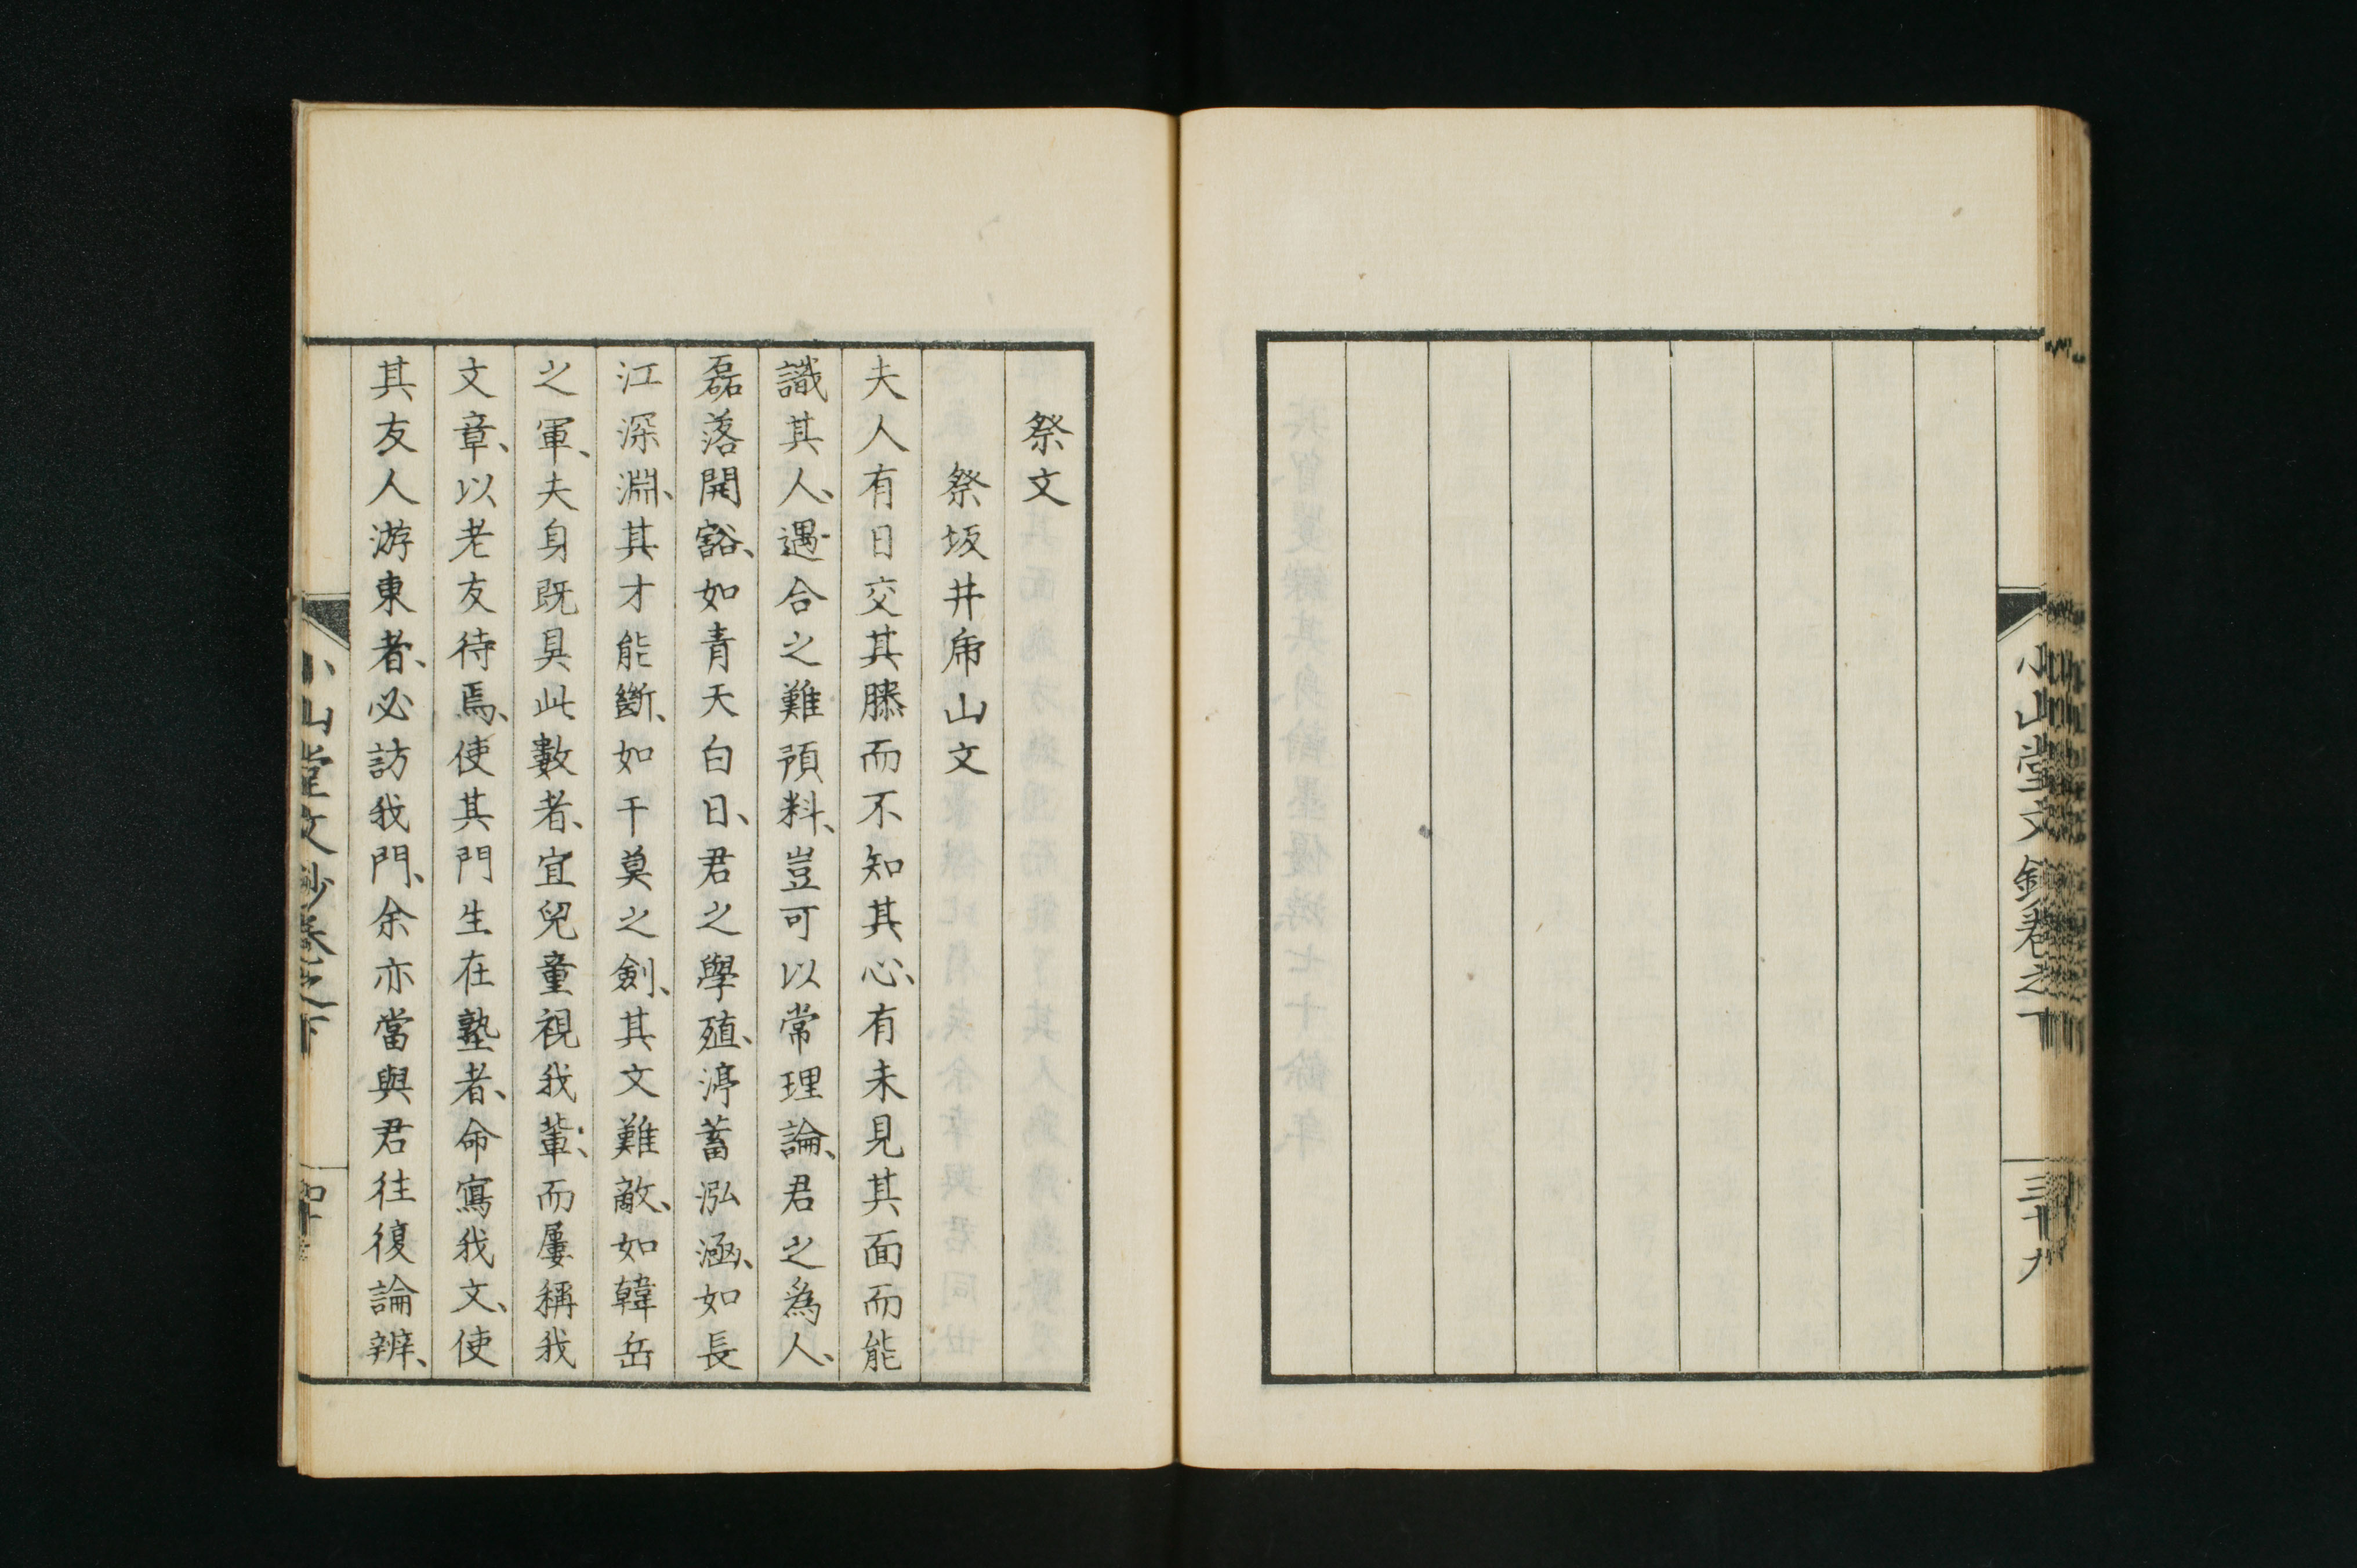 小山堂文鈔卷之下
三十九
祭文
祭坂井乕山文
夫人有日交其膝而不知其心、有未見其面而能
識其人、遇合之難預料、豈可以常理論、君之爲人、
磊落開豁、如青天白日、君之學殖、渟蓄泓涵、如長
江深淵、其才能斷、如干莫之劍、其文難敵、如韓岳
之軍、夫身既具此數者、宜兒童視我輩、而屢稱我
文章、以老友待焉、使其門生在塾者、命寫我文、使
其友人游東者、必訪我門、余亦當與君往復論辨、
小山堂文鈔卷之下
四十